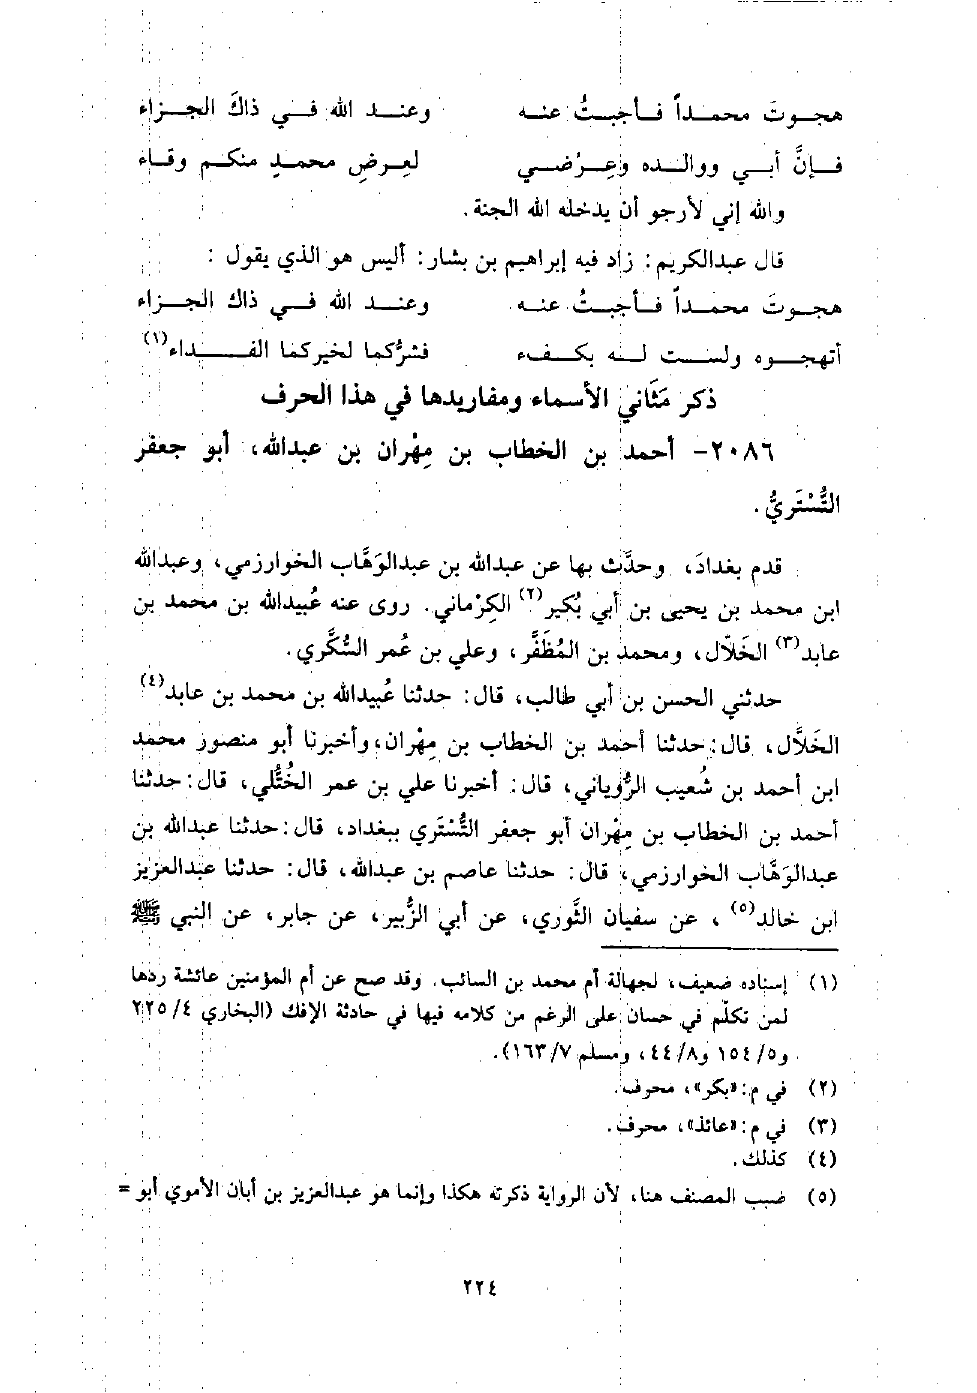 هجوتَ محمداً فأجبتُ عنه وعند الله في ذاكَ الجزاء
فإنَّ أبي ووالده وعِرْضي لعِرضِ محمدٍ منكم وقاء
والله إني لأرجو أن يدخله الله الجنة.
قال عبدالكريم: زاد فيه إبراهيم بن بشار: أليس هو الذي يقول:
هجوتَ محمداً فأجبتُ عنه وعند الله في ذاك الجزاء
أتهجوه ولست له بكفء فشرُّكما لخيركما الفداء(١)
ذكر مَثَاني الأسماء ومفاريدها في هذا الحرف
٢٠٨٦- أحمد بن الخطاب بن مِهْران بن عبدالله، أبو جعفر
التُّسْتَريُّ.
قدم بغدادَ، وحدَّث بها عن عبدالله بن عبدالوَهَّاب الخوارزمي، وعبدالله
ابن محمد بن يحيى بن أبي بُكير(٢) الكِرْماني. روى عنه عُبيدالله بن محمد بن
عابد(٣) الخَلاّل، ومحمد بن المُظَفَّر، وعلي بن عُمر السُّكَّري.
حدثني الحسن بن أبي طالب، قال: حدثنا عُبيدالله بن محمد بن عابد(٤)
الخَلاَّل، قال: حدثنا أحمد بن الخطاب بن مِهْران، وأخبرنا أبو منصور محمد
ابن أحمد بن شُعيب الرُّوياني، قال: أخبرنا علي بن عمر الخُتُّلي، قال: حدثنا
أحمد بن الخطاب بن مِهْران أبو جعفر التُّسْتَري ببغداد، قال: حدثنا عبدالله بن
عبدالوَهَّاب الخوارزمي، قال: حدثنا عاصم بن عبدالله، قال: حدثنا عبدالعزيز
ابن خالد(٥)، عن سفيان الثَّوري، عن أبي الزُّبير، عن جابر، عن النبي ﷺ
(١) إسناده ضعيف، لجهالة أم محمد بن السائب. وقد صح عن أم المؤمنين عائشة ردها
لمن تكلّم في حسان على الرغم من كلامه فيها في حادثة الإفك (البخاري ٤/ ٢٢٥
و٥/ ١٥٤ و٨/ ٤٤، ومسلم ٧/ ١٦٣).
(٢) في م: «بكر»، محرف.
(٣) في م: «عائذ»، محرف.
(٤) كذلك.
(٥) ضبب المصنف هنا، لأن الرواية ذكرته هكذا وإنما هو عبدالعزيز بن أبان الأموي أبو =
٢٢٤